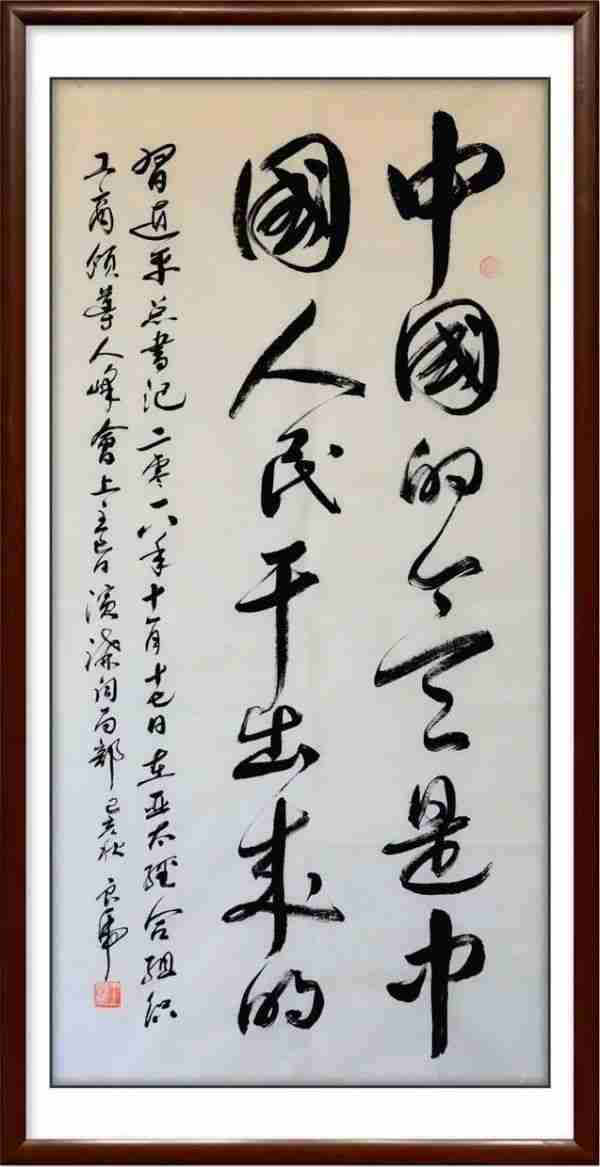 中國的今天是中
國人民干出来的
習近平总書记二零一八年十一月十七日在亚太經合組织
工商領導人峰會上主旨演講词局部 己亥秋